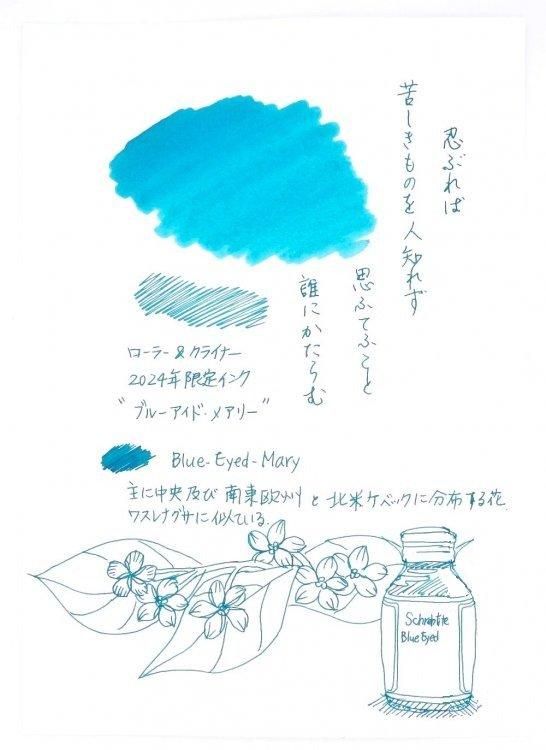 忍ぶれば
苦しきものを人知れず
思ふてふこと
誰にかたらむ
ローラー&クライナー
2024年限定インク
"ブルーアイド・メアリー"
Blue-Eyed-Mary
主に中央及び南東欧州と北米ケベックに分布する花
ワスレナグサに似ている.
Blue Eyed